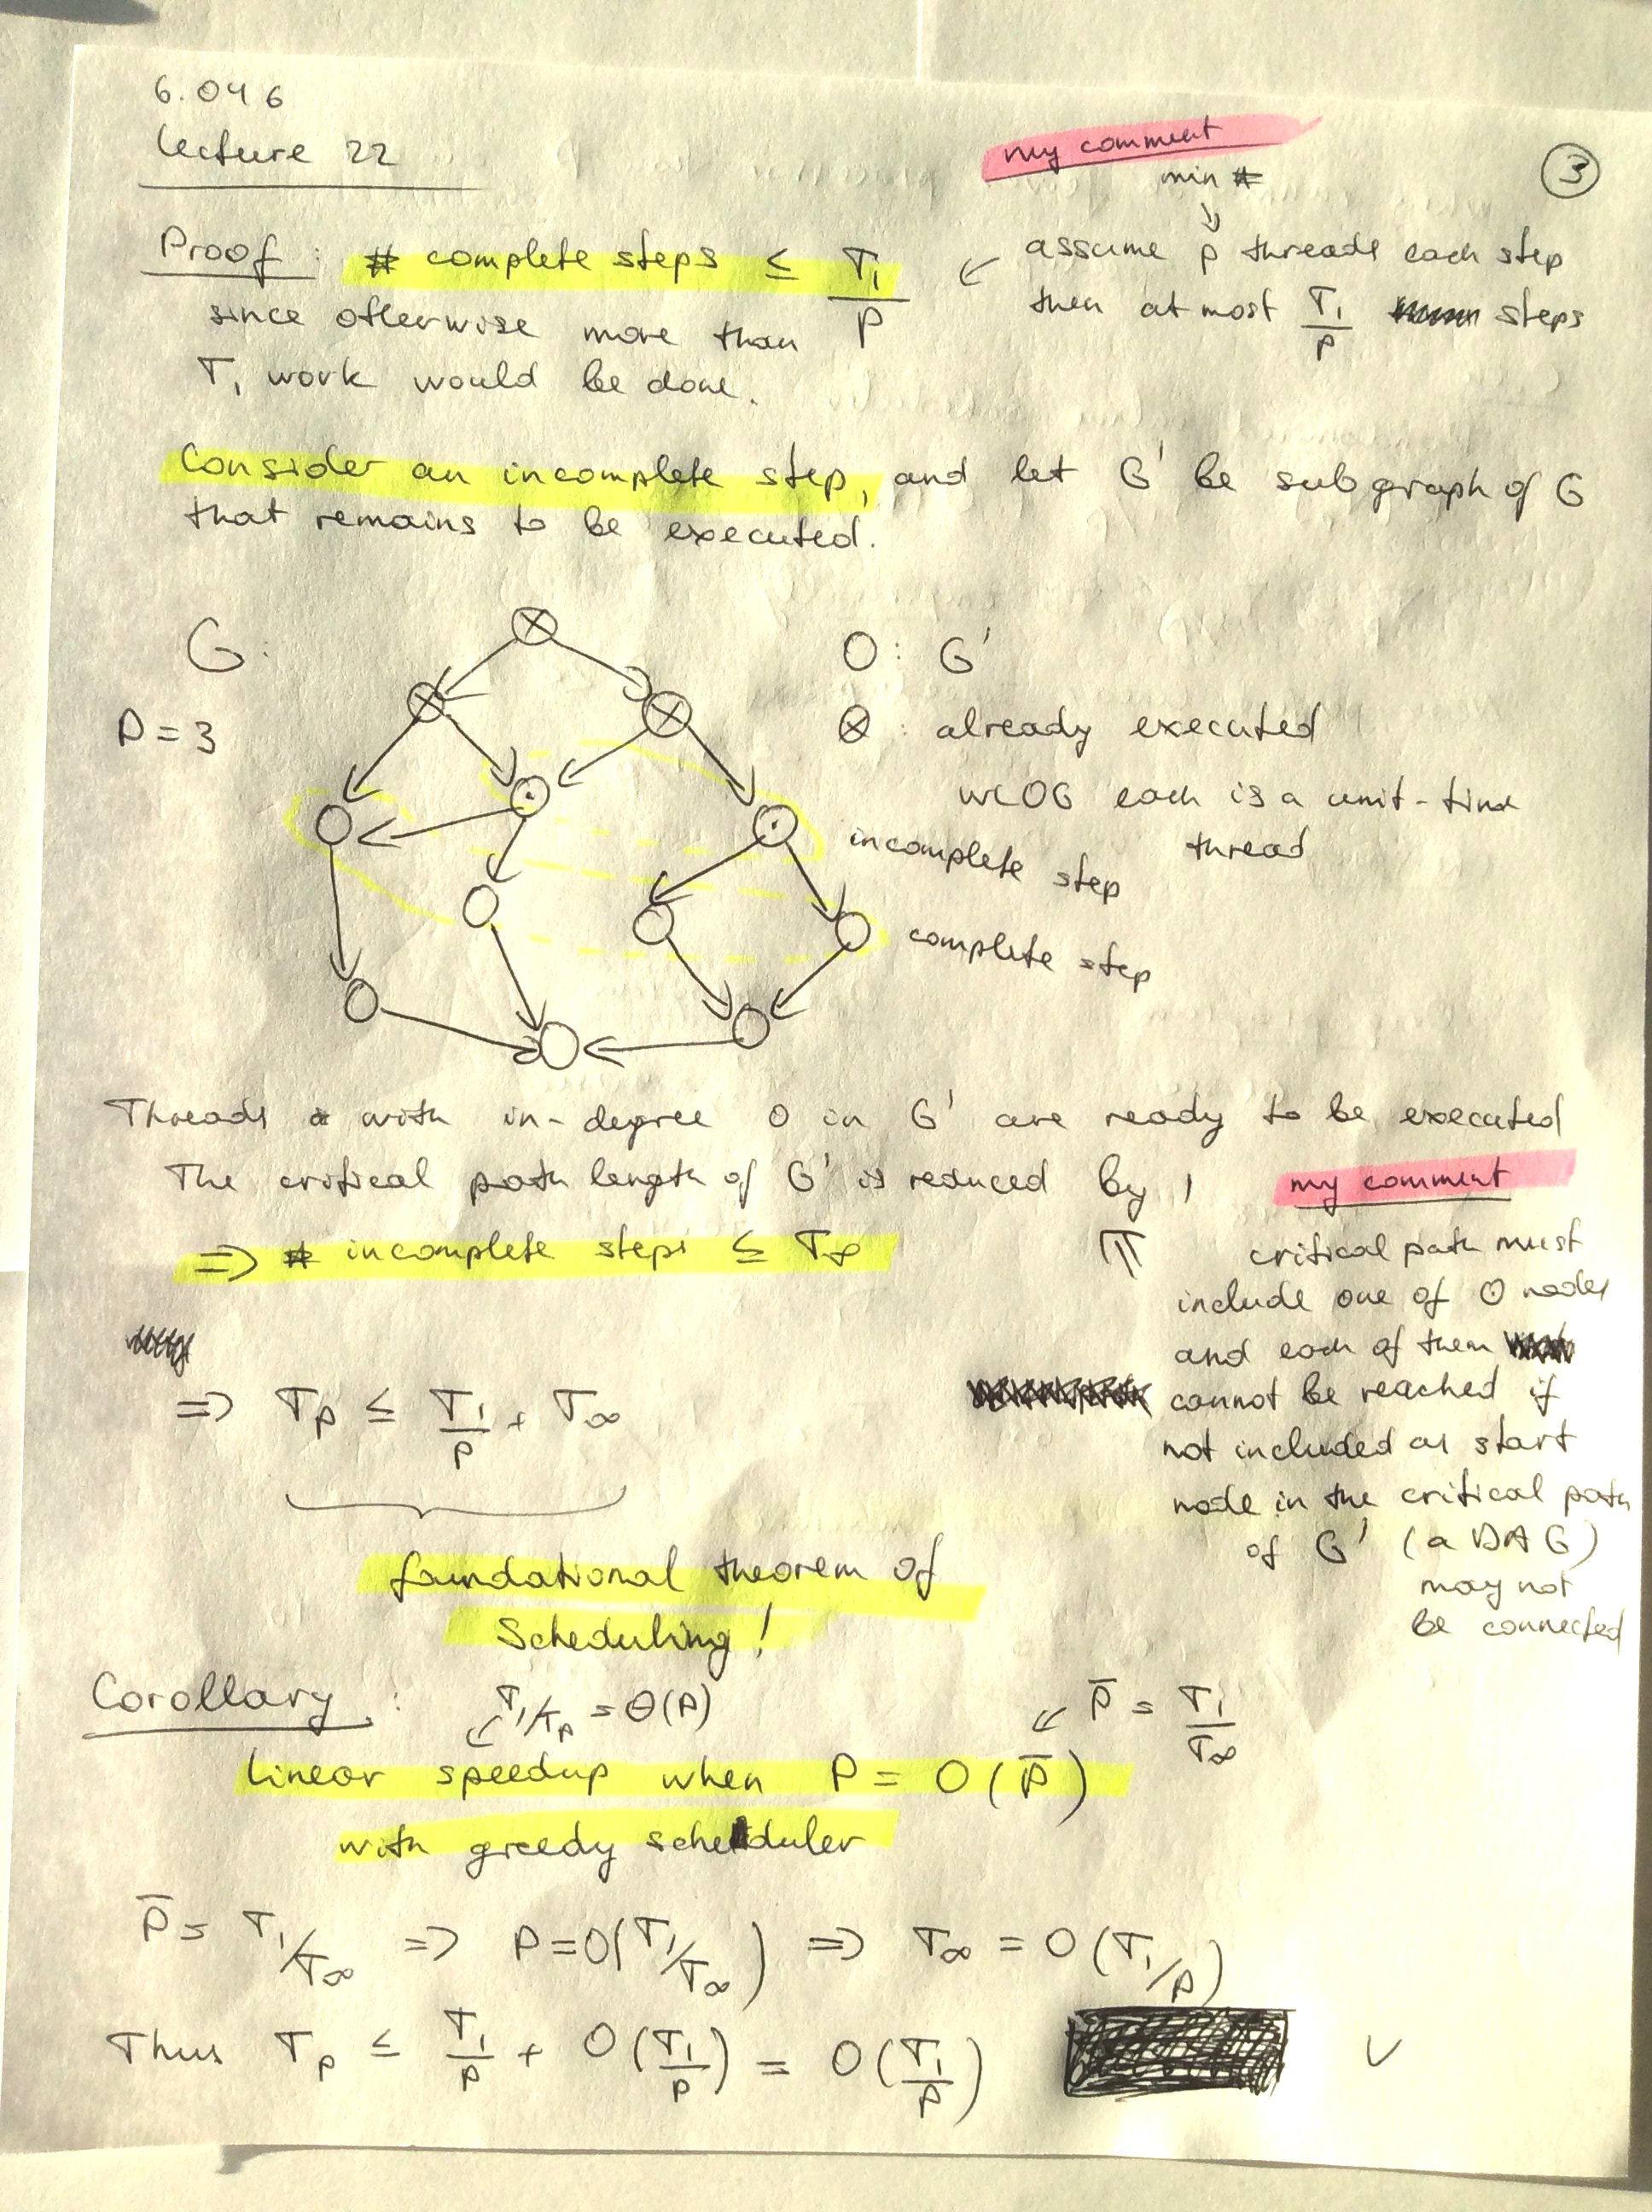 6.046
Lecture 22
my comment
3
min #
↓
Proof: # complete steps ≤ T₁/P
← assume p threads each step
then at most T₁/P steps
since otherwise more than
T₁ work would be done.
Consider an incomplete step, and let G' be subgraph of G
that remains to be executed.
G:
P = 3
O: G'
⊗: already executed
WLOG each is a unit-time
thread
incomplete step
complete step
Threads with in-degree 0 in G' are ready to be executed
The critical path length of G' is reduced by 1
my comment
⇒ # incomplete steps ≤ T∞
⇑
critical path must
include one of ⊙ nodes
and each of them
cannot be reached if
not included as start
node in the critical path
of G' (a DAG)
may not
be connected
⇒ Tp ≤ T₁/P + T∞
foundational theorem of
Scheduling!
Corollary:
T₁/Tp = Θ(P)
P̄ = T₁/T∞
linear speedup when P = O(P̄)
with greedy scheduler
P̄ = T₁/T∞ ⇒ P = O(T₁/T∞) ⇒ T∞ = O(T₁/P)
Thus Tp ≤ T₁/P + O(T₁/P) = O(T₁/P) ✓